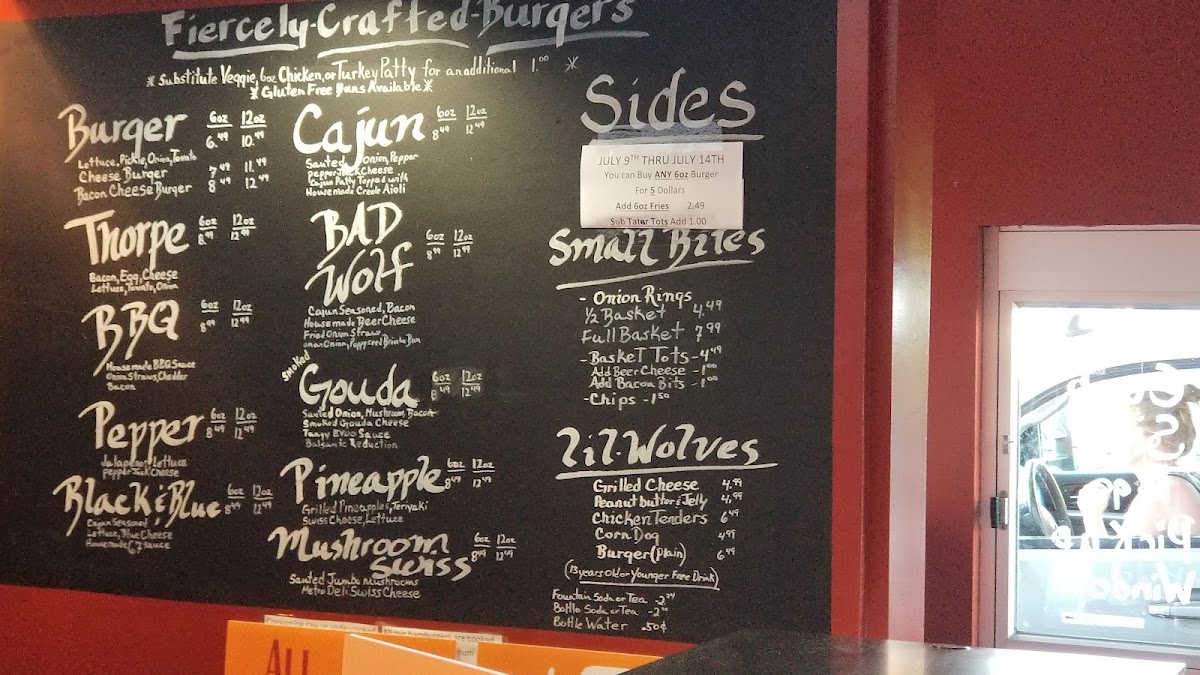 Fiercely-Crafted-Burgers
* Substitute Veggie, 6oz Chicken, or Turkey Patty for an additional 1.00 *
* Gluten Free Buns Available *
Burger 6oz 12oz
6.49 10.49
Lettuce, Pickle, Onion, Tomato
Cheese Burger 7.49 11.49
Bacon Cheese Burger 8.49 12.49
Thorpe 6oz 12oz
8.49 12.49
Bacon, Egg, Cheese
Lettuce, Tomato, Onion
BBQ 6oz 12oz
8.49 12.49
Housemade BBQ Sauce
Onion Straws, Cheddar
Bacon
Pepper 6oz 12oz
8.49 12.49
Jalapeno, Lettuce
Pepper Jack Cheese
Black & Blue 6oz 12oz
8.49 12.49
Cajun Seasoned
Lettuce, Blue Cheese
Housemade 67 Sauce
Cajun 6oz 12oz
8.49 12.49
Sauted Onion, Pepper
Pepper Jack Cheese
Cajun Patty Topped with
Housemade Creole Aioli
BAD
Wolf 6oz 12oz
8.49 12.49
Cajun Seasoned, Bacon
Housemade Beer Cheese
Fried Onion Straw
Onion, Poppyseed Brioche Bun
Smoked
Gouda 6oz 12oz
8.49 12.49
Sauted Onion, Mushroom, Bacon
Smoked Gouda Cheese
Tangy EVOO Sauce
Balsamic Reduction
Pineapple 6oz 12oz
8.49 12.49
Grilled Pineapple, Teriyaki
Swiss Cheese, Lettuce
Mushroom
Swiss 6oz 12oz
8.49 12.49
Sauted Jumbo Mushrooms
Metro Deli Swiss Cheese
Sides
JULY 9TH THRU JULY 14TH
You can Buy ANY 6oz Burger
For 5 Dollars
Add 6oz Fries 2.49
Sub Tater Tots Add 1.00
Small Bites
- Onion Rings
1/2 Basket 4.49
Full Basket 7.99
- Basket Tots - 4.49
Add Beer Cheese - 1.00
Add Bacon Bits - 1.00
- Chips - 1.50
Lil-Wolves
Grilled Cheese 4.99
Peanut butter & Jelly 4.99
Chicken Tenders 6.49
Corn Dog 4.99
Burger (Plain) 6.49
(13 years Old or Younger Free Drink)
Fountain Soda or Tea - 2.29
Bottle Soda or Tea
Bottle Water .50¢
ALL